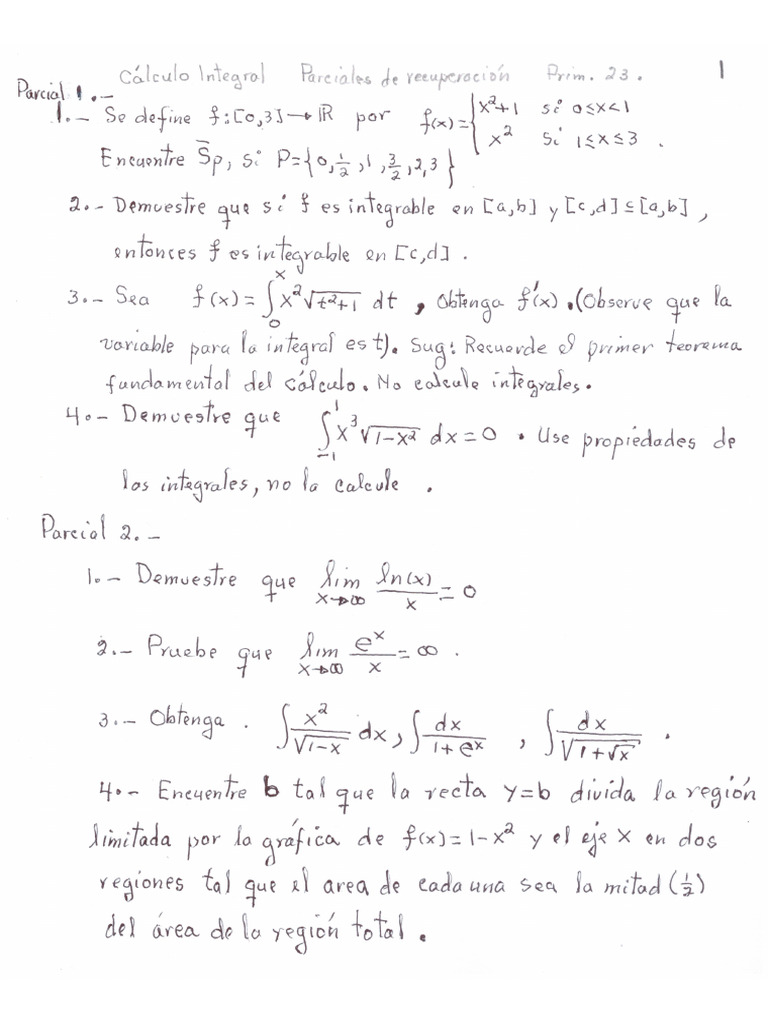 Cálculo Integral Parciales de recuperación Prim. 23. 1
Parcial 1.-
1.- Se define f:[0,3]→ℝ por f(x)={x²+1 si 0≤x<1
x² si 1≤x≤3.
Encuentre S̅p, si P={0,½,1,3/2,2,3}
2.- Demuestre que si f es integrable en [a,b] y [c,d]⊆[a,b],
entonces f es integrable en [c,d].
3.- Sea f(x)=∫₀ˣ x²√(t²+1) dt, Obtenga f'(x).(Observe que la
variable para la integral es t). Sug: Recuerde el primer teorema
fundamental del cálculo. No calcule integrales.
4.- Demuestre que ∫₋₁¹ x³√(1-x²) dx=0. Use propiedades de
las integrales, no la calcule.
Parcial 2.-
1.- Demuestre que lim x→∞ ln(x)/x=0
2.- Pruebe que lim x→∞ eˣ/x=∞.
3.- Obtenga. ∫x²/√(1-x) dx, ∫dx/(1+eˣ), ∫dx/√(1+√x).
4.- Encuentre b tal que la recta y=b divida la región
limitada por la gráfica de f(x)=1-x² y el eje X en dos
regiones tal que el area de cada una sea la mitad (½)
del área de la región total.